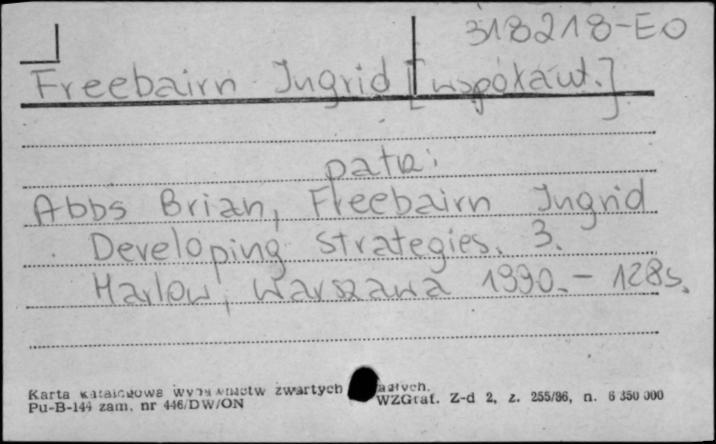 318218-EO
Freebairn Ingrid [współaut.]
patrz:
Abbs Brian, Freebairn Ingrid
Developing strategies. 3.
Harlow, Warszawa 1990. - 128s.
Karta katalogowa wydawnictw zwartych
Pu-B-144 zam. nr 446/DW/ON WZGraf. Z-d 2, z. 255/86, n. 6 350 000